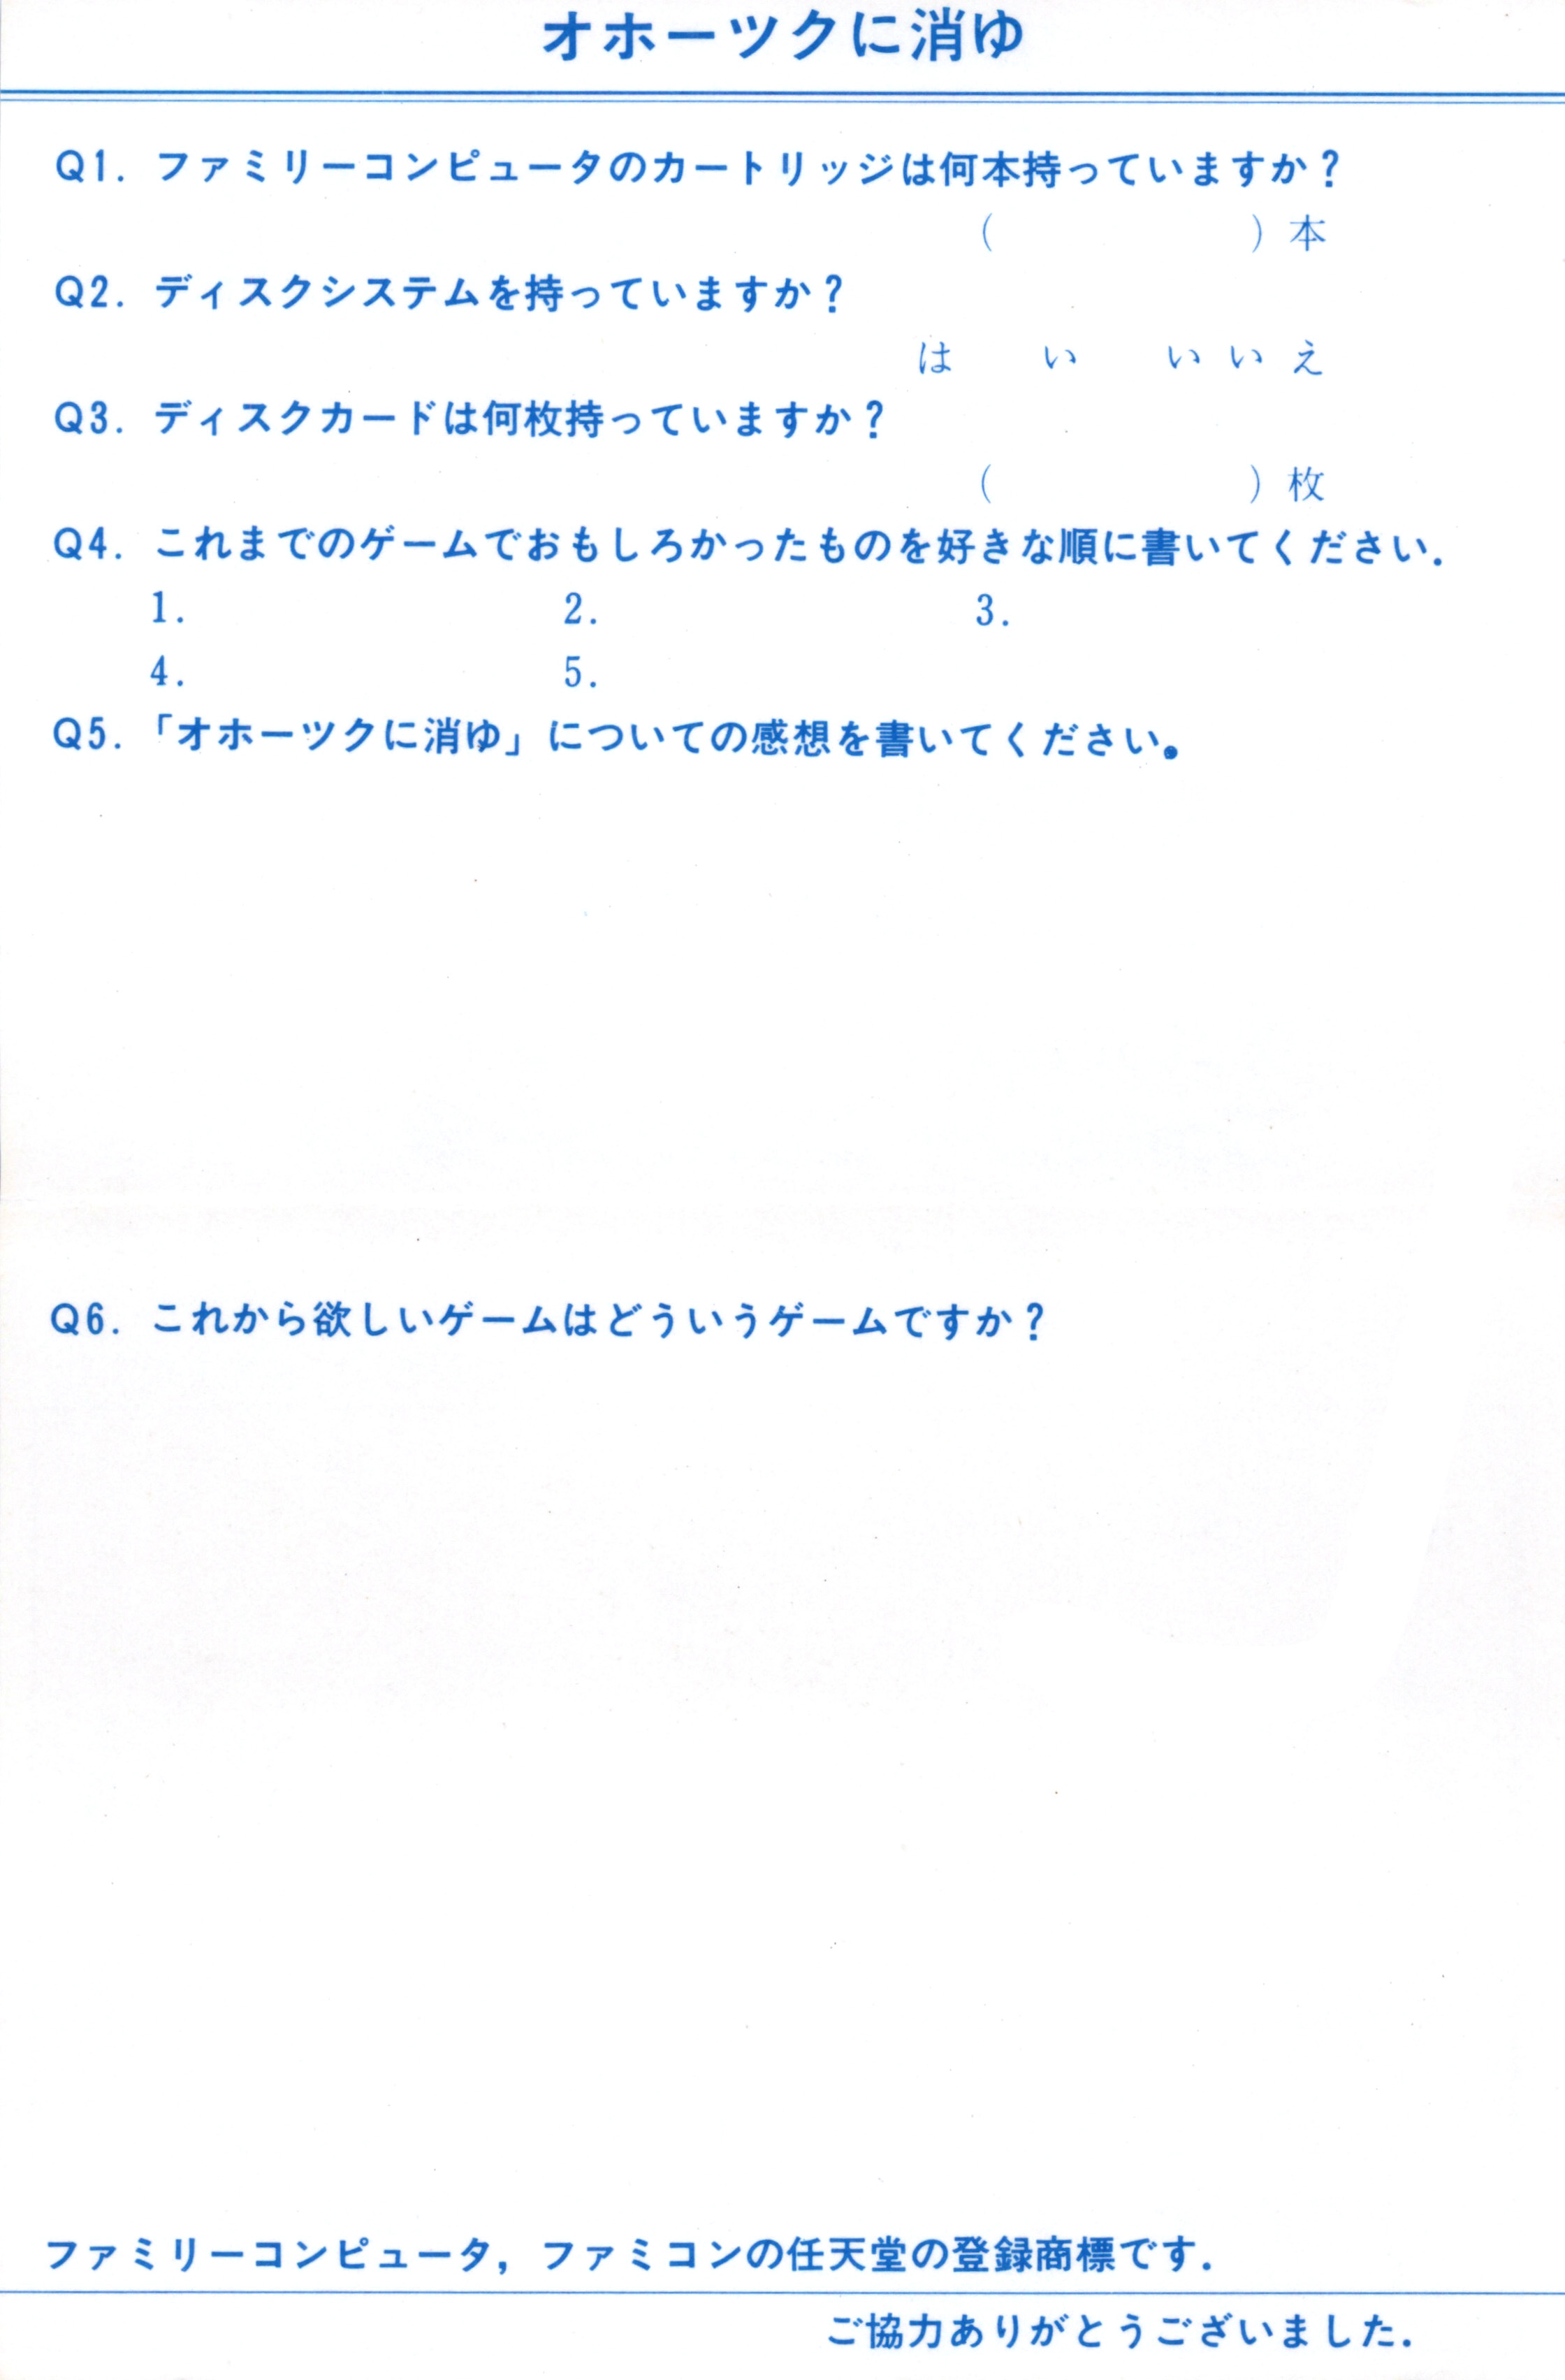 オホーツクに消ゆ
Q1. ファミリーコンピュータのカートリッジは何本持っていますか?
(　　　　　　)本
Q2. ディスクシステムを持っていますか?
は　い　いいえ
Q3. ディスクカードは何枚持っていますか?
(　　　　　　)枚
Q4. これまでのゲームでおもしろかったものを好きな順に書いてください.
1.　　　　　　2.　　　　　　3.
4.　　　　　　5.
Q5.「オホーツクに消ゆ」についての感想を書いてください。
Q6. これから欲しいゲームはどういうゲームですか?
ファミリーコンピュータ, ファミコンの任天堂の登録商標です.
ご協力ありがとうございました.